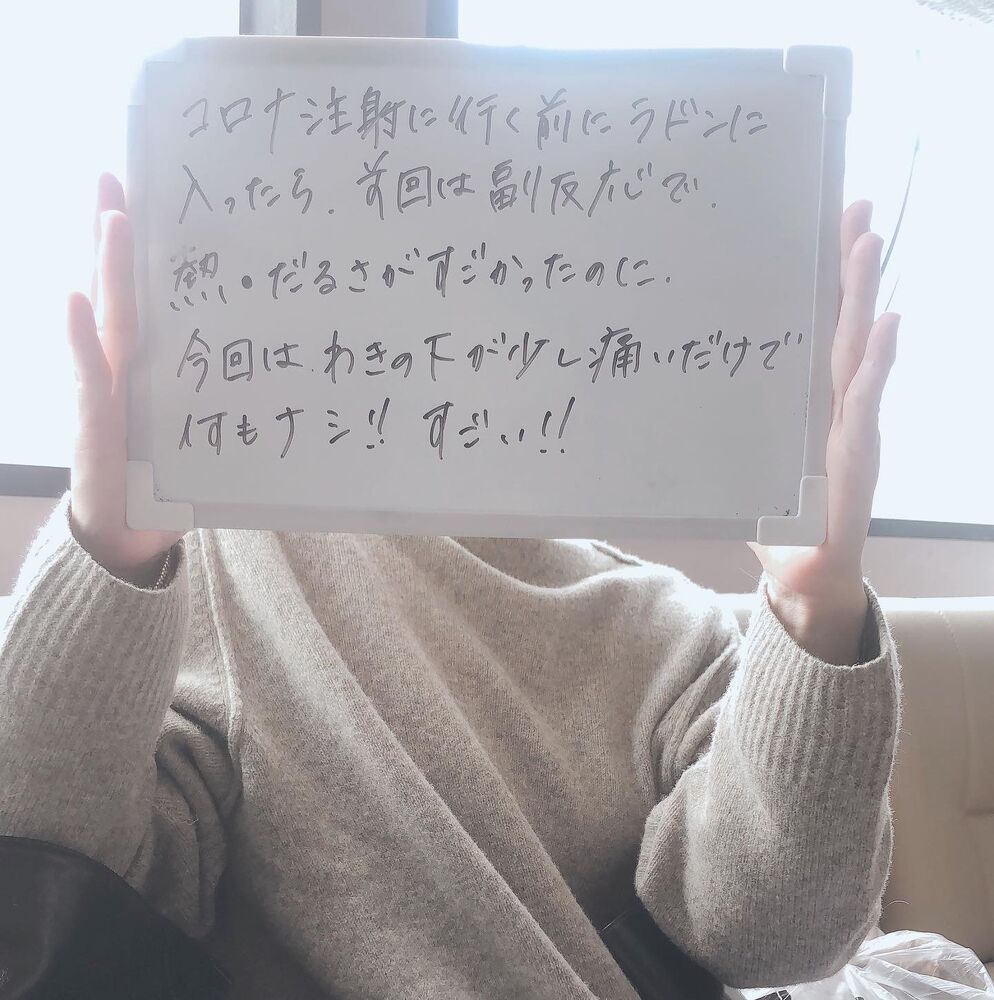 コロナ注射に行く前にラドンに
入ったら、前回は副反応で、
熱・だるさがすごかったのに、
今回は、わきの下が少し痛いだけで
何もナシ!! すごい!!